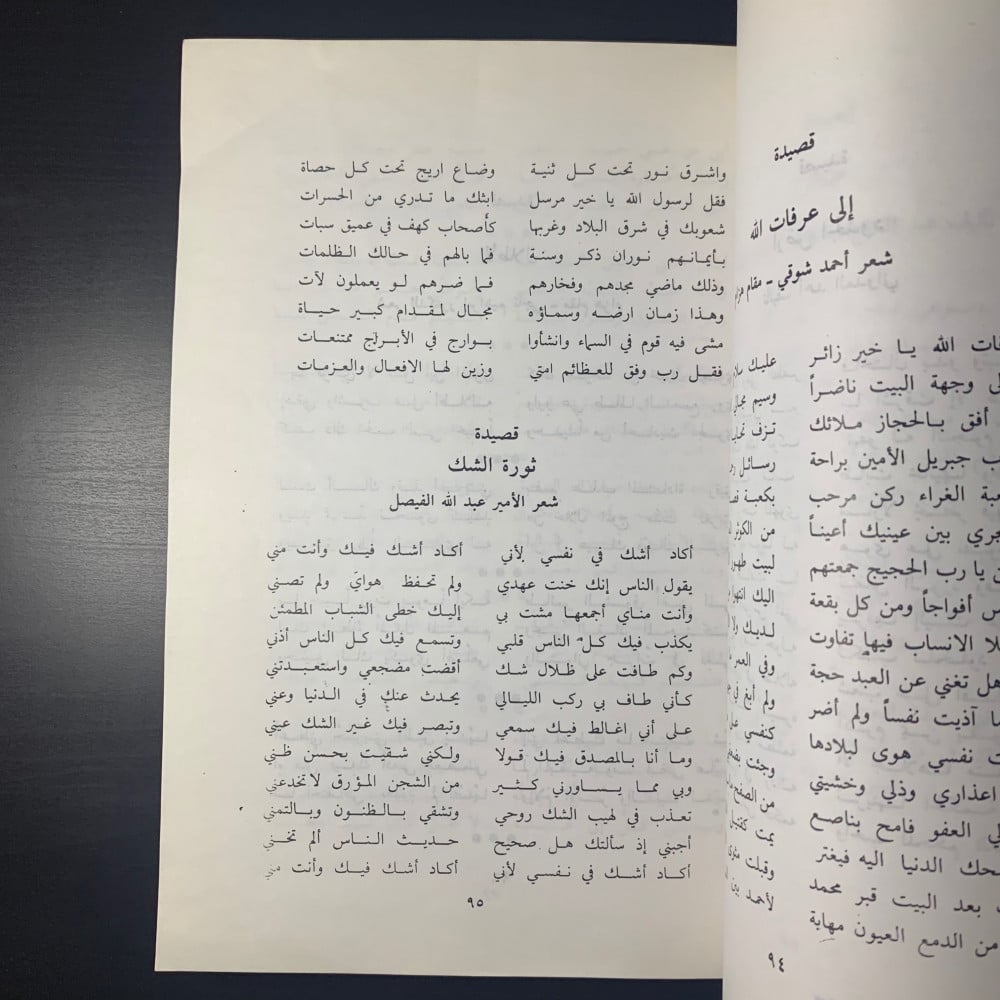 قصيدة
إلى عرفات الله
شعر أحمد شوقي - مقام
الله يا خير زائر عليك
وجهة البيت ناضراً وسيم
أفق بالحجاز ملائك تزف
جبريل الأمين براحة رسائل
الغراء ركن مرحب بكعبة
بين عينيك أعيناً من الكوثر
يا رب الحجيج جمعتهم لبيت
أفواجاً ومن كل بقعة اليك
الانساب فيها تفاوت لديك ولا
هل تغني عن العبد حجة وفي العمر
آذيت نفساً ولم أضر ولم أبغ في
نفسي هوى لبلادها كنفسي
اعذاري وذلي وخشيتي وجئت
العفو فامح بناصع من الصفح
الدنيا اليه فيغتر
بعد البيت قبر محمد وقبلت
من الدمع العيون مهابة لأحمد بين
٩٤
واشرق نور تحت كل ثنية وضاع اريج تحت كل حصاة
فقل لرسول الله يا خير مرسل ابثك ما تدري من الحسرات
شعوبك في شرق البلاد وغربها كأصحاب كهف في عميق سبات
بأيمانهم نوران ذكر وسنة فما بالهم في حالك الظلمات
وذلك ماضي مجدهم وفخارهم فما ضرهم لو يعملون لآت
وهذا زمان ارضه وسماؤه مجال لمقدام كبير حياة
مشى فيه قوم في السماء وانشأوا بوارج في الأبراج ممتنعات
فقل رب وفق للعظائم امتي وزين لها الافعال والعزمات
قصيدة
ثورة الشك
شعر الأمير عبد الله الفيصل
أكاد أشك في نفسي لأني أكاد أشك فيك وأنت مني
يقول الناس إنك خنت عهدي ولم تحفظ هوايَ ولم تصني
وأنت مناي أجمعها مشت بي إليك خطى الشباب المطمئن
يكذب فيك كل الناس قلبي وتسمع فيك كل الناس أذني
وكم طافت على ظلال شك أقضت مضجعي واستعبدتني
كأني طاف بي ركب الليالي يحدث عنك في الدنيا وعني
على أني اغالط فيك سمعي وتبصر فيك غير الشك عيني
وما أنا بالمصدق فيك قولا ولكني شقيت بحسن ظني
وبي مما يساورني كثير من الشجن المؤرق لا تخدعني
تعذب في لهيب الشك روحي وتشقي بالظنون وبالتمني
أجبني إذ سألتك هل صحيح حديث الناس ألم تخني
أكاد أشك في نفسي لأني أكاد أشك فيك وأنت مني
٩٥